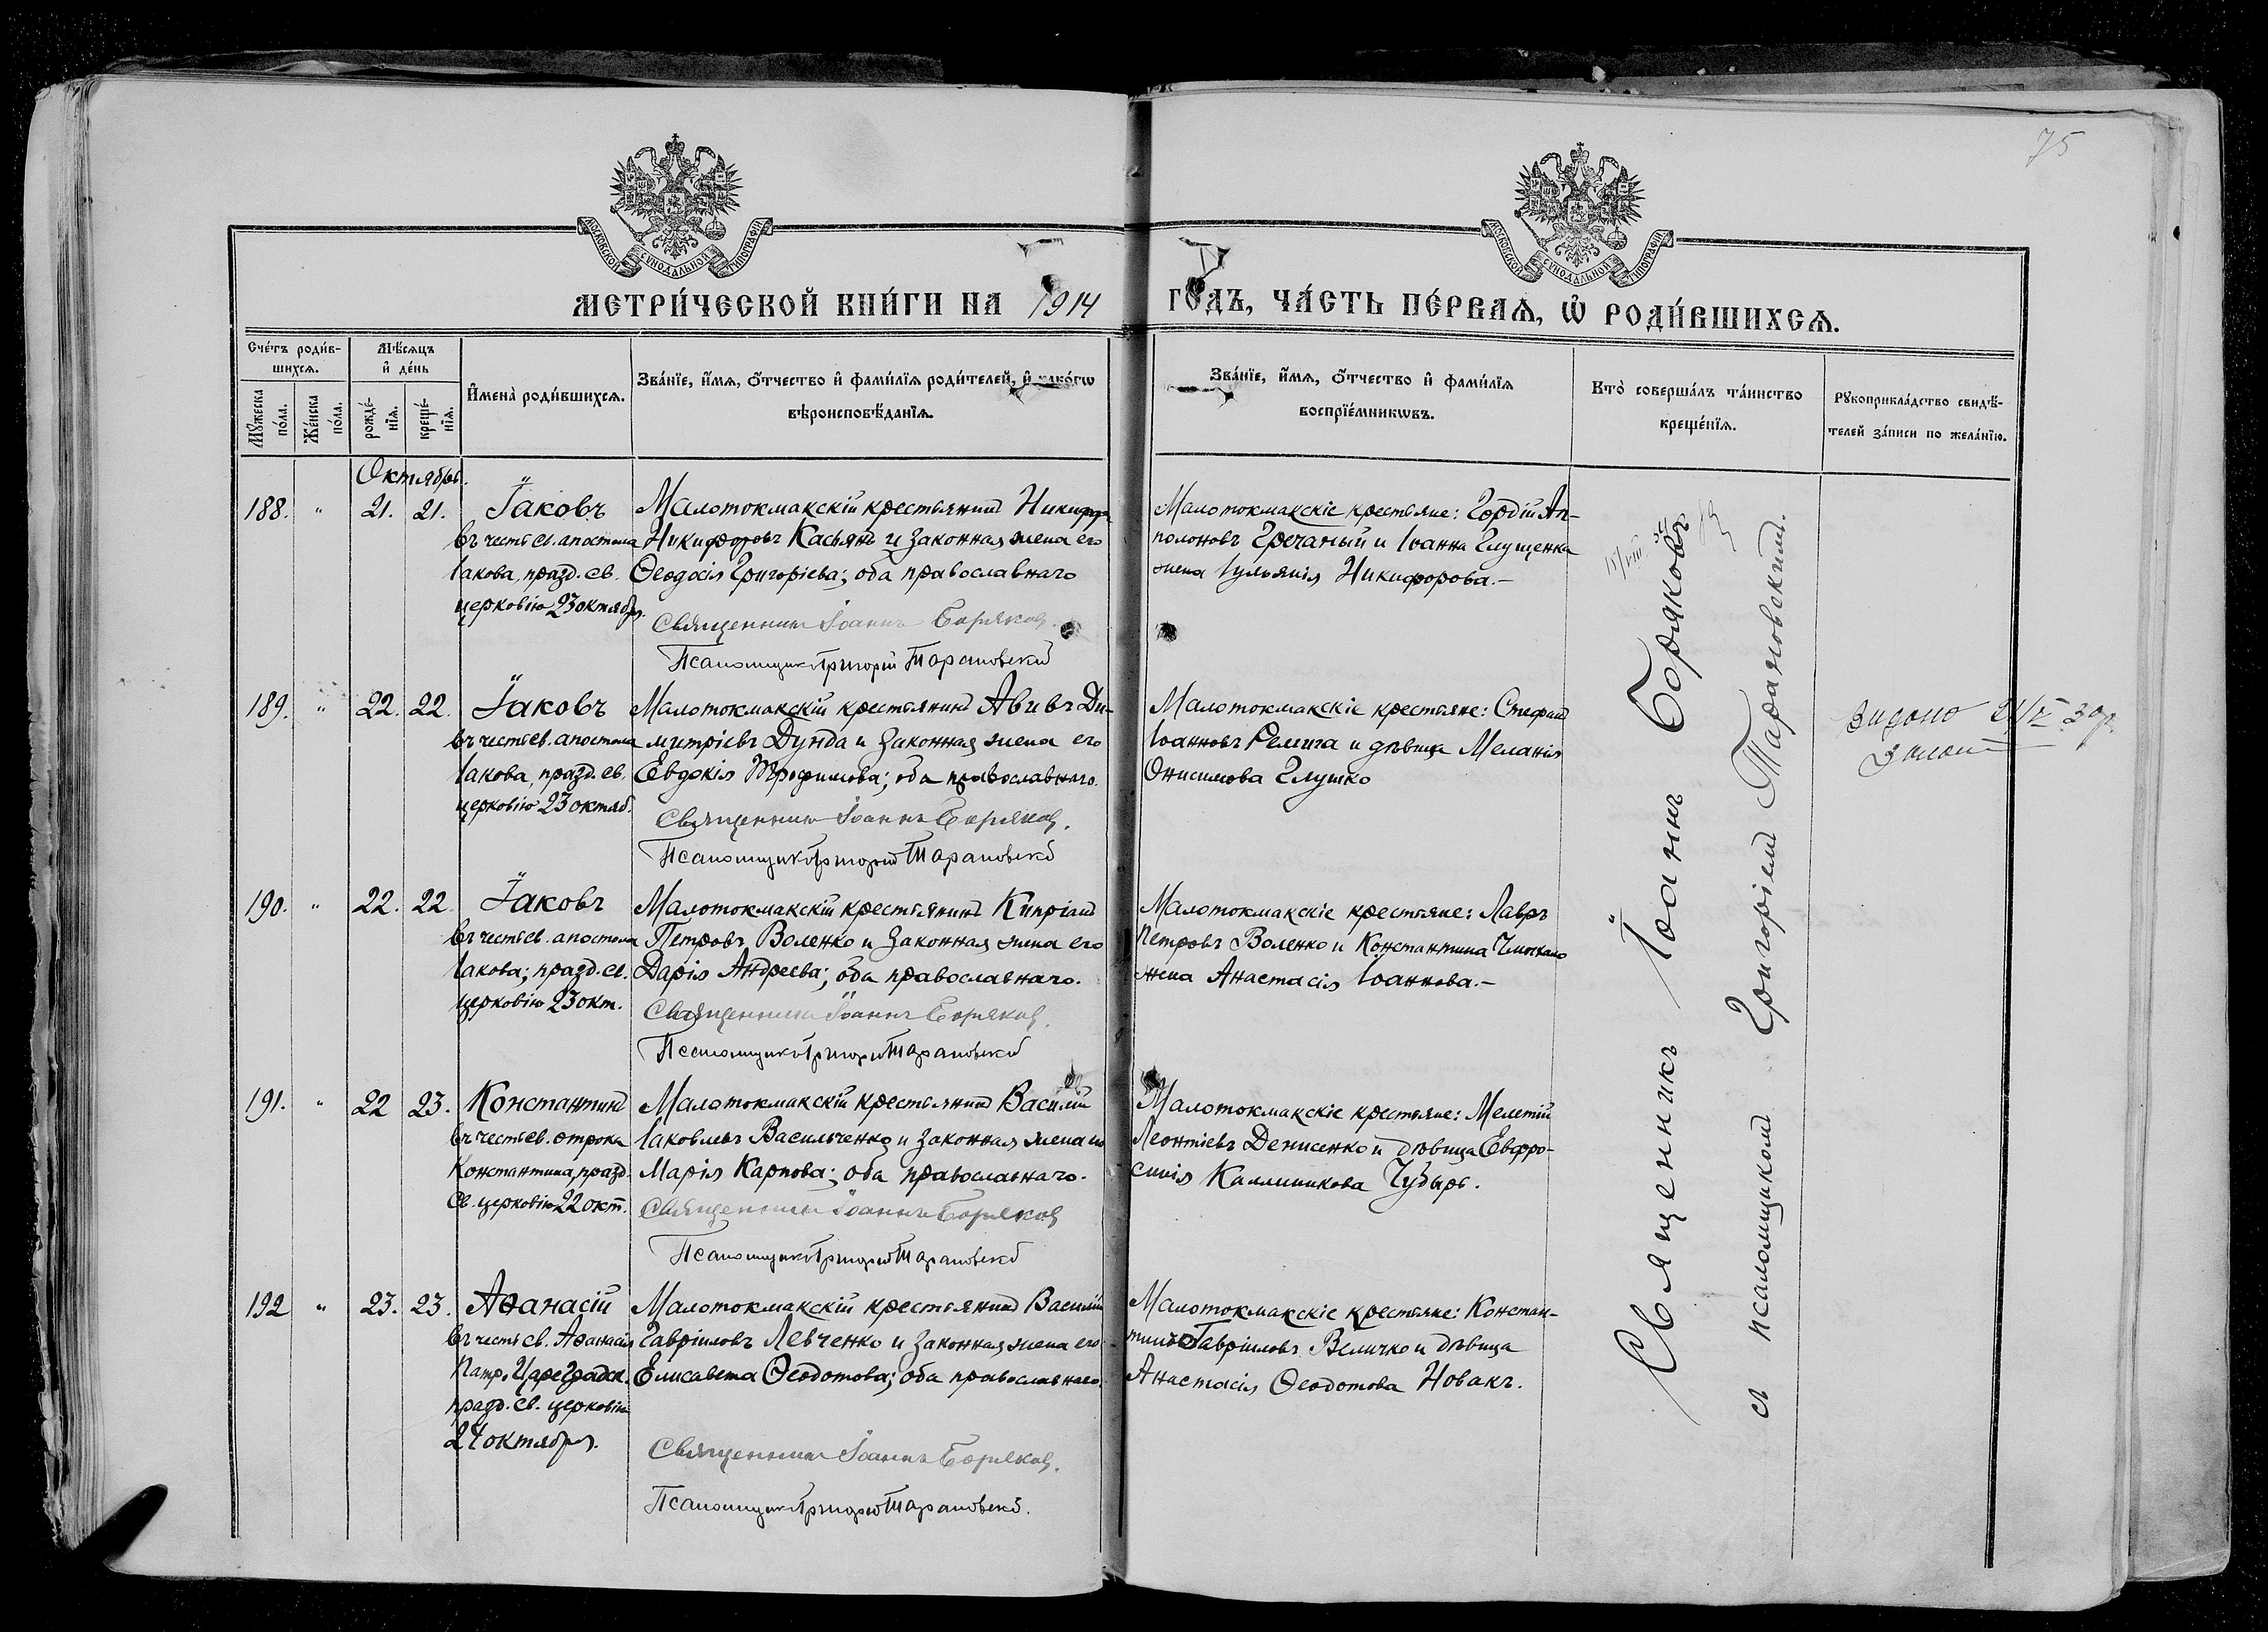 75
МОСКОВСКОЙ СѴНОДАЛЬНОЙ ТИПОГРАФІИ
МОСКОВСКОЙ СѴНОДАЛЬНОЙ ТИПОГРАФІИ
МЕТРИ́ЧЕСКОЙ КНИ́ГИ НА 1914 ГО́ДЪ, ЧА́СТЬ ПЕ́РВАѦ, Ѡ҆ РОДИ́ВШИХСѦ.
Сче́тъ роди́в-
шихсѧ.
Мꙋ́жеска по́ла.
Же́нска по́ла.
Мѣ́сѧцъ
и҆ де́нь
рожде́-нїѧ.
креще́-нїѧ.
И҆мена̀ роди́вшихсѧ.
Зва́нїе, и҆́мѧ, ѻ҆́тчество и҆ фами́лїѧ роди́телей, и҆ како́гѡ
вѣроисповѣ́данїѧ.
Зва́нїе, и҆́мѧ, ѻ҆́тчество и҆ фами́лїѧ
воспрїе́мникѡвъ.
Кто̀ соверша́лъ та́инство
креще́нїѧ.
Рꙋкоприкла́дство свидѣ́-
телей за́писи по жела́нїю.
Октябрь.
188. " 21. 21.
Іаковъ
въ честь св. апостола
Іакова, празд. св.
церковію 23 октябр.
Малотокмакскій крестьянинъ Никифоръ
Никифоровъ Касьянъ и законная жена его
Ѳеодосія Григорієва; оба православнаго
Священникъ Іоаннъ Боряковъ.
Псаломщикъ Григорій Тарановскій
Малотокмакскіе крестьяне: Гордій Ап-
полоновъ Гречаный и Іоанна Глущенка
жена Іульянія Никифорова.—
189. " 22. 22.
Іаковъ
въ честь св. апостола
Іакова, празд. св.
церковію 23 октяб.
Малотокмакскій крестьянинъ Авивъ Ди-
митріевъ Дунда и законная жена его
Евдокія Трофимова; оба православнаго.
Священникъ Іоаннъ Боряковъ.
Псаломщикъ Григорій Тарановскій
Малотокмакскіе крестьяне: Стефанъ
Іоанновъ Ремига и дѣвица Меланія
Онисимова Глушко
видано
190. " 22. 22
Іаковъ
въ честь св. апостола
Іакова; празд. св.
церковію 23 окт.
Малотокмакскій крестьянинъ Кипріанъ
Петровъ Воленко и законная жена его
Дарія Андреева; оба православнаго.
Священникъ Іоаннъ Боряковъ.
Псаломщикъ Григорій Тарановскій
Малотокмакскіе крестьяне: Лавръ
Петровъ Воленко и Константина
жена Анастасія Іоаннова.—
191. " 22 23.
Константинъ
въ честь св. отрока
Константина, празд.
св. церковію 22 окт.
Малотокмакскій крестьянинъ Василій
Іаковлевъ Васильченко и законная жена его
Марія Карпова; оба православнаго.
Священникъ Іоаннъ Боряковъ
Псаломщикъ Григорій Тарановскій
Малотокмакскіе крестьяне: Мелетій
Леонтіевъ Денисенко и дѣвица Евфро-
синія Каллиникова Чубарь.
192 " 23. 23.
Аѳанасій
въ честь св. Аѳанасія
Патр. Цареградск.
празд. св. церковію
24 октября.
Малотокмакскій крестьянинъ Василій
Гавріиловъ Левченко и законная жена его
Елисавета Ѳеодотова; оба православнаго.
Священникъ Іоаннъ Боряковъ.
Псаломщикъ Григорій Тарановскій.
Малотокмакскіе крестьяне: Констан-
тинъ Гавріиловъ Величко и дѣвица
Анастасія Ѳеодотова Новакъ.
Священникъ Іоаннъ Боряковъ
съ псаломщикомъ Григоріемъ Тарановскимъ.